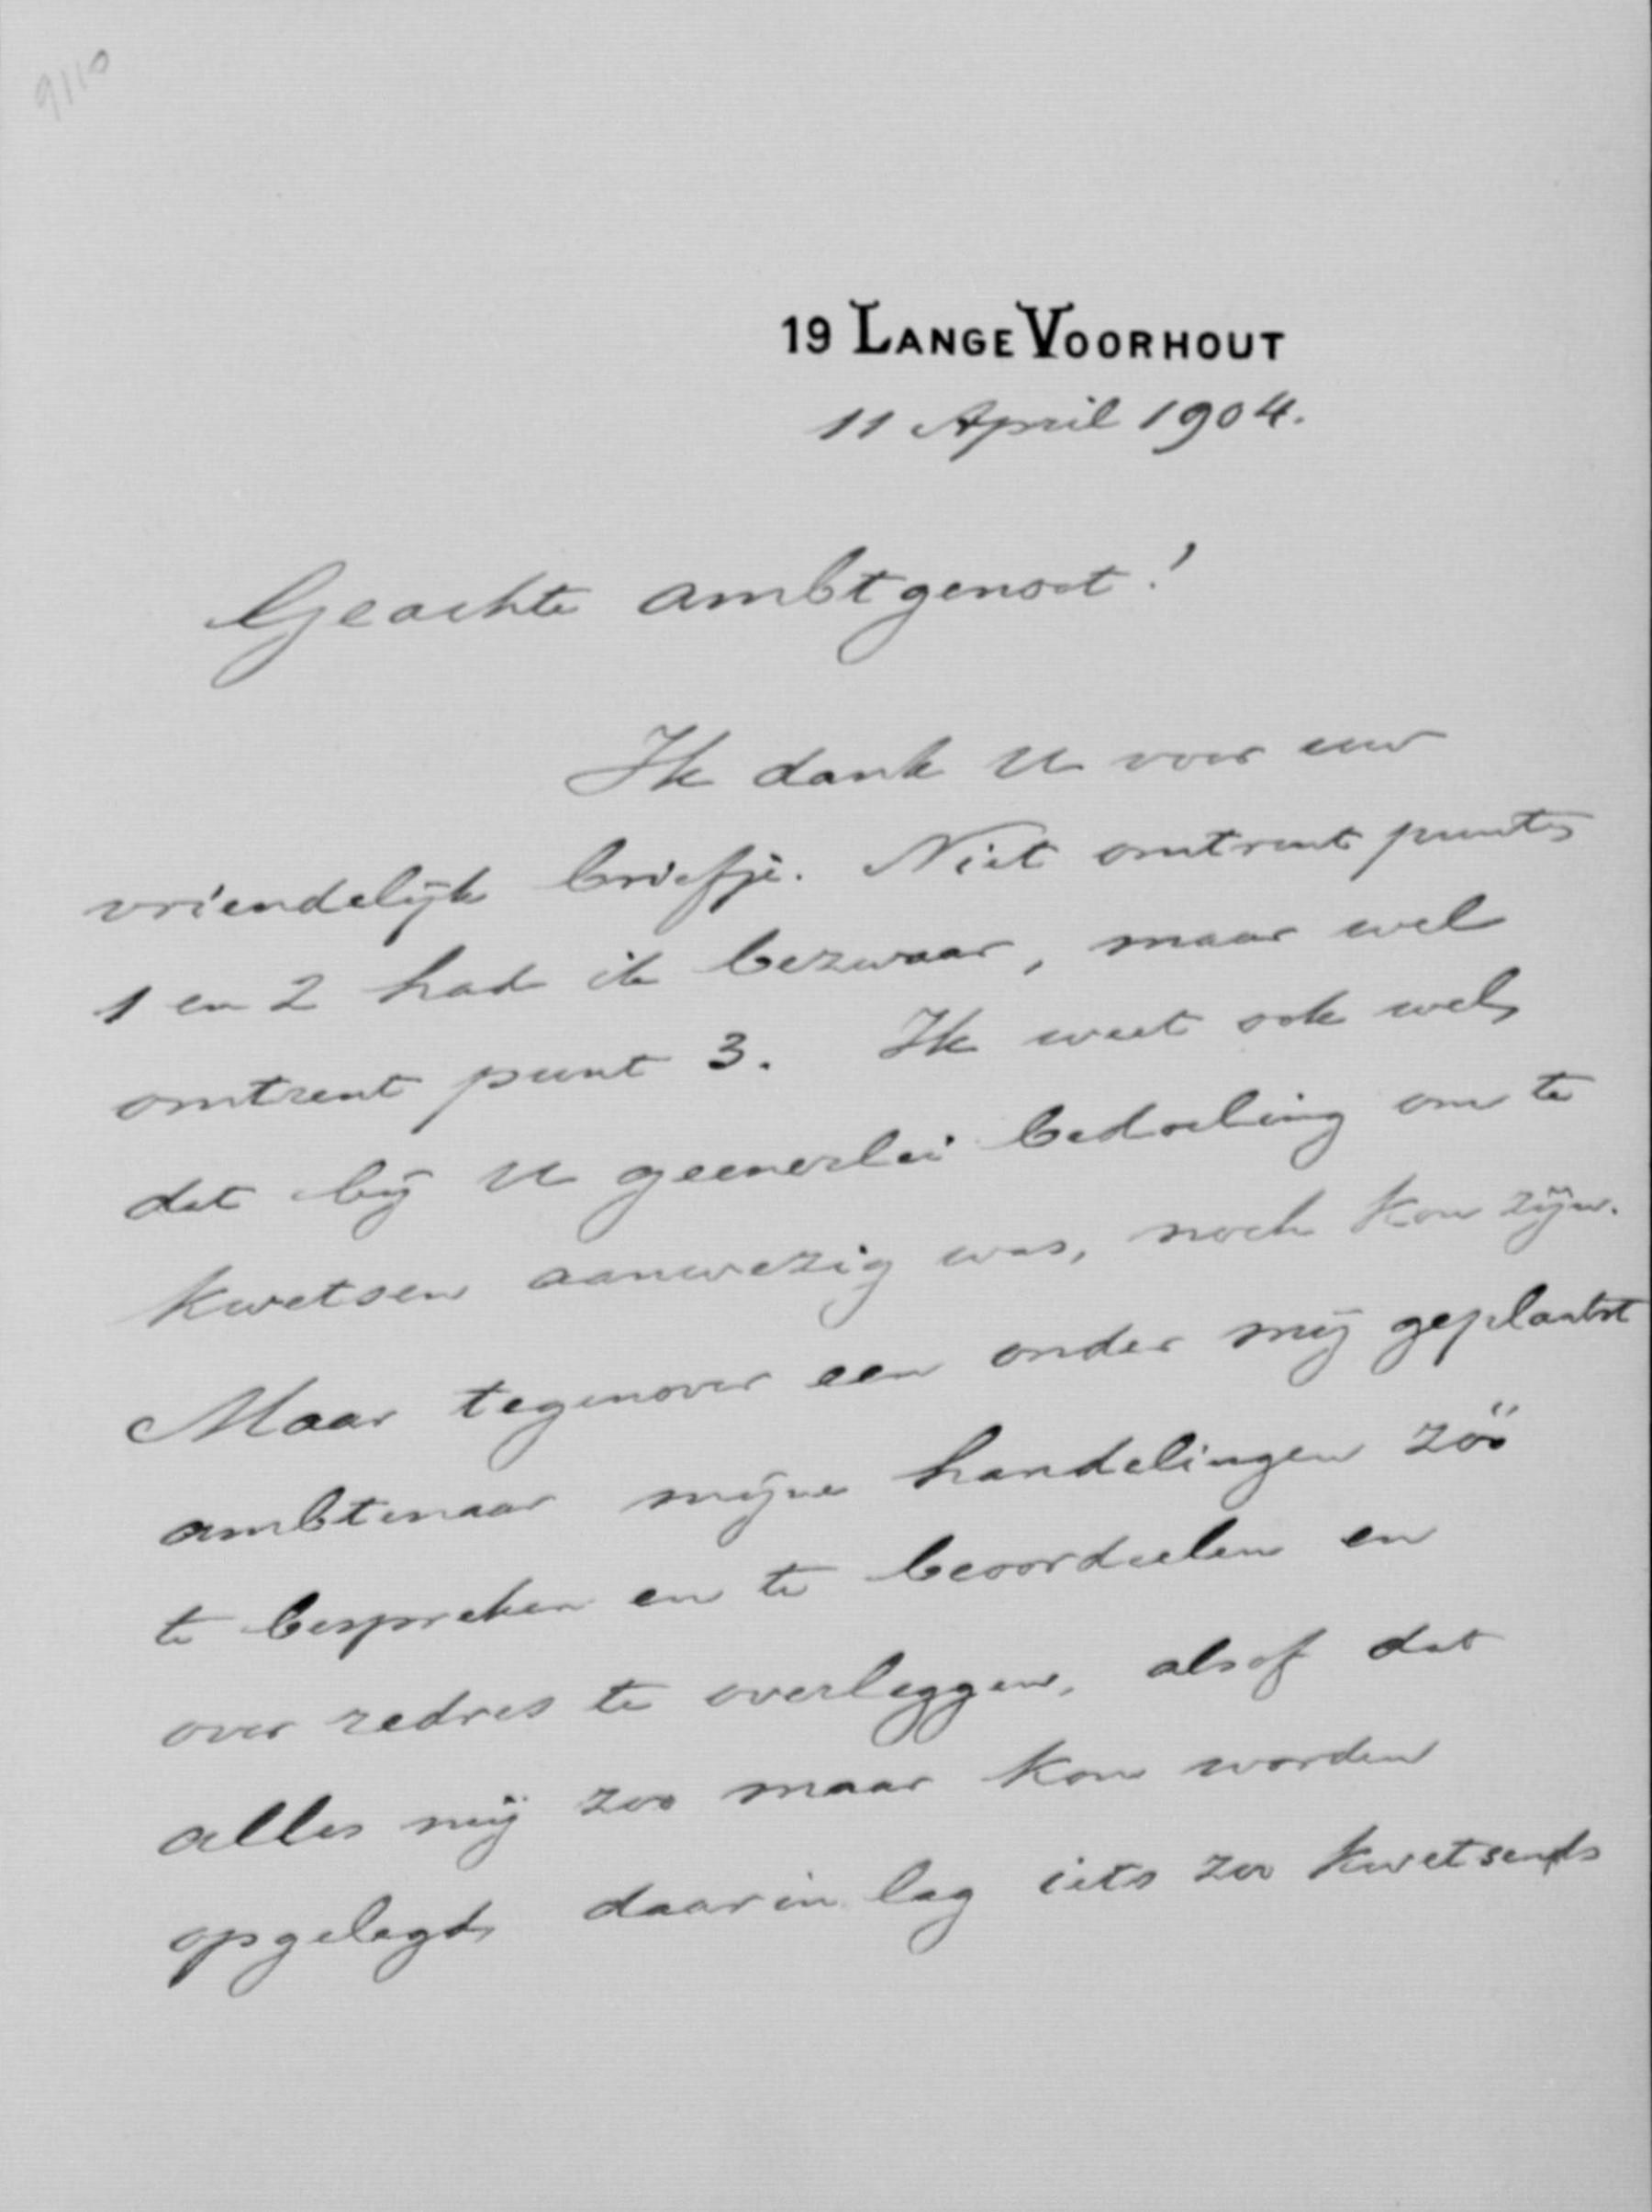 9110
19 LANGE VOORHOUT
11 April 1904.
Geachte ambtgenoot!
Ik dank U voor uw
vriendelijk briefje. Niet omtrent punten
1 en 2 had ik bezwaar, maar wel
omtrent punt 3. Ik weet ook wel,
dat bij U geenerlei bedoeling om te
kwetsen aanwezig was, noch kon zijn.
Maar tegenover een onder mij geplaatst
ambtenaar mijne handelingen zóó
te bespreken en te beoordeelen en
over redres te overleggen, alsof dat
alles mij zoo maar kon worden
opgelegd, daarin lag iets zoo kwetsends